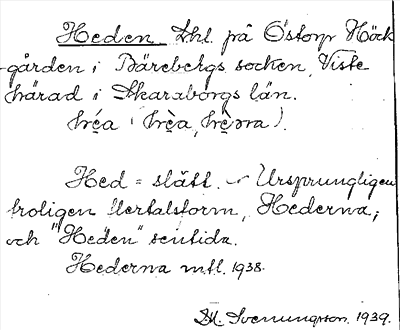 Heden Lhl. på Östorp Höck-
gården i Bärebergs socken, Viste
härad i Skaraborgs län.
hre̱a (hrèa, hrèna).
Hed = slätt. Ursprungligen
troligen flertalsform, Hederna,
och "Heden" sentida.
Hederna mtl. 1938.
M. Svenungsson. 1939.